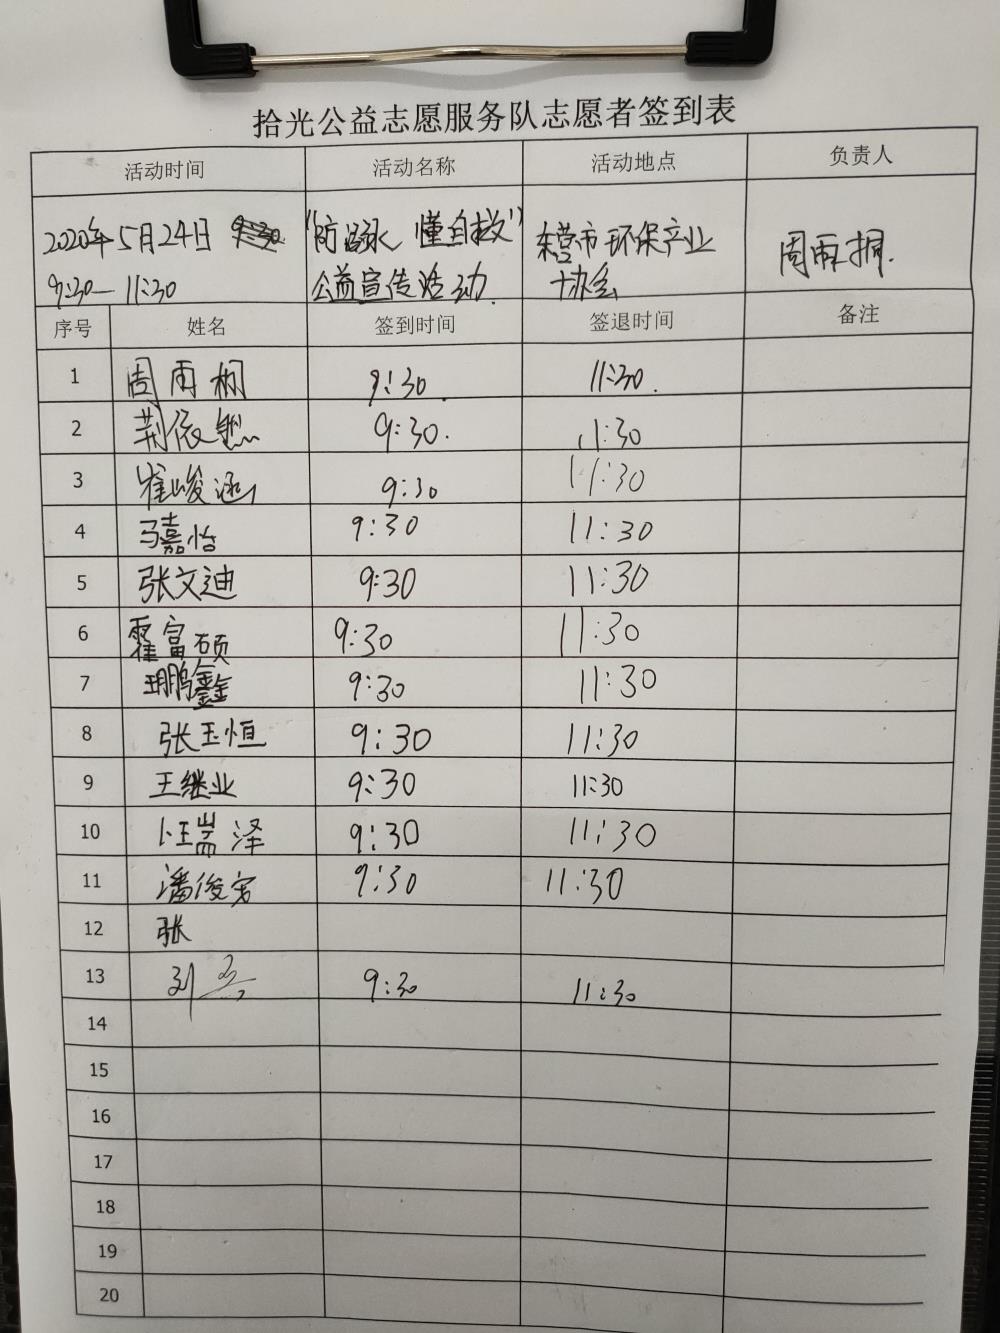 拾光公益志愿服务队志愿者签到表
活动时间 活动名称 活动地点 负责人
2020年5月24日 "防溺水 懂自救" 东营市环保产业 周雨桐.
9:30—11:30 公益宣传活动. 协会
序号 姓名 签到时间 签退时间 备注
1 周雨桐 9:30. 11:30.
2 荆依然 9:30. 11:30
3 崔峻涵 9:30 11:30
4 马嘉怡 9:30 11:30
5 张文迪 9:30 11:30
6 霍富硕 9:30 11:30
7 鹏鑫 9:30 11:30
8 张玉恒 9:30 11:30
9 王继业 9:30 11:30
10 汪端泽 9:30 11:30
11 潘俊 9:30 11:30
12 张
13 刘 9:30 11:30
14
15
16
17
18
19
20